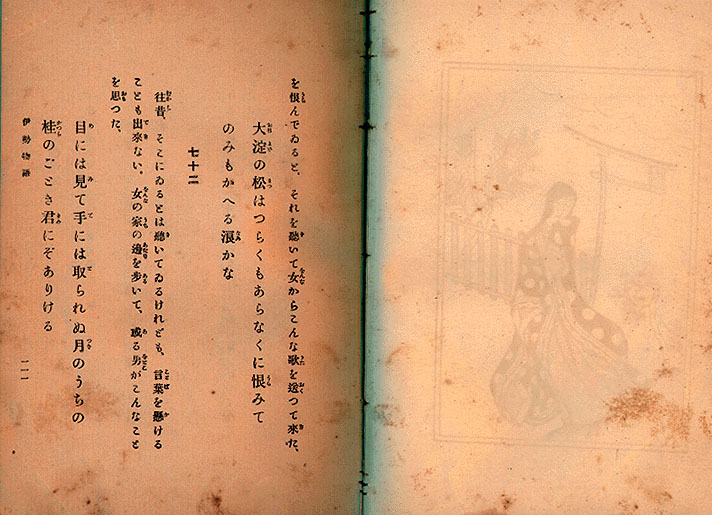 を恨んでゐると、それを聽いて女からこんな歌を送つて來た、
大淀の松はつらくもあらなくに恨みて
のみもかへる浪かな
七十二
往昔、そこにゐるとは聽いてゐるけれども、言葉を懸ける
ことも出來ない。女の家の邊を步いて、或る男がこんなこと
を思つた、
目には見て手には取られぬ月のうちの
桂のごとき君にぞありける
伊勢物語
一一一